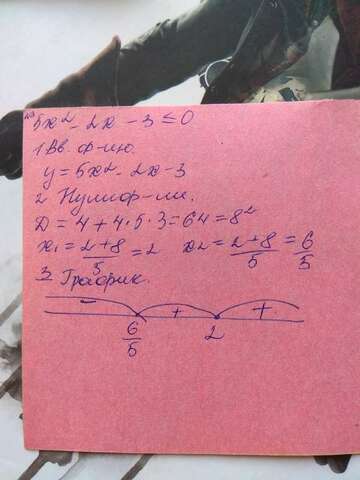 5x² - 2x - 3 ≤ 0
1 Вв. ф-ию.
y = 5x² - 2x - 3
2 Нули ф-ии.
D = 4 + 4·5·3 = 64 = 8²
x₁ = (2+8)/5 = 2 x₂ = (2+8)/5 = 6/5
3 График.
- + +
6/5 2